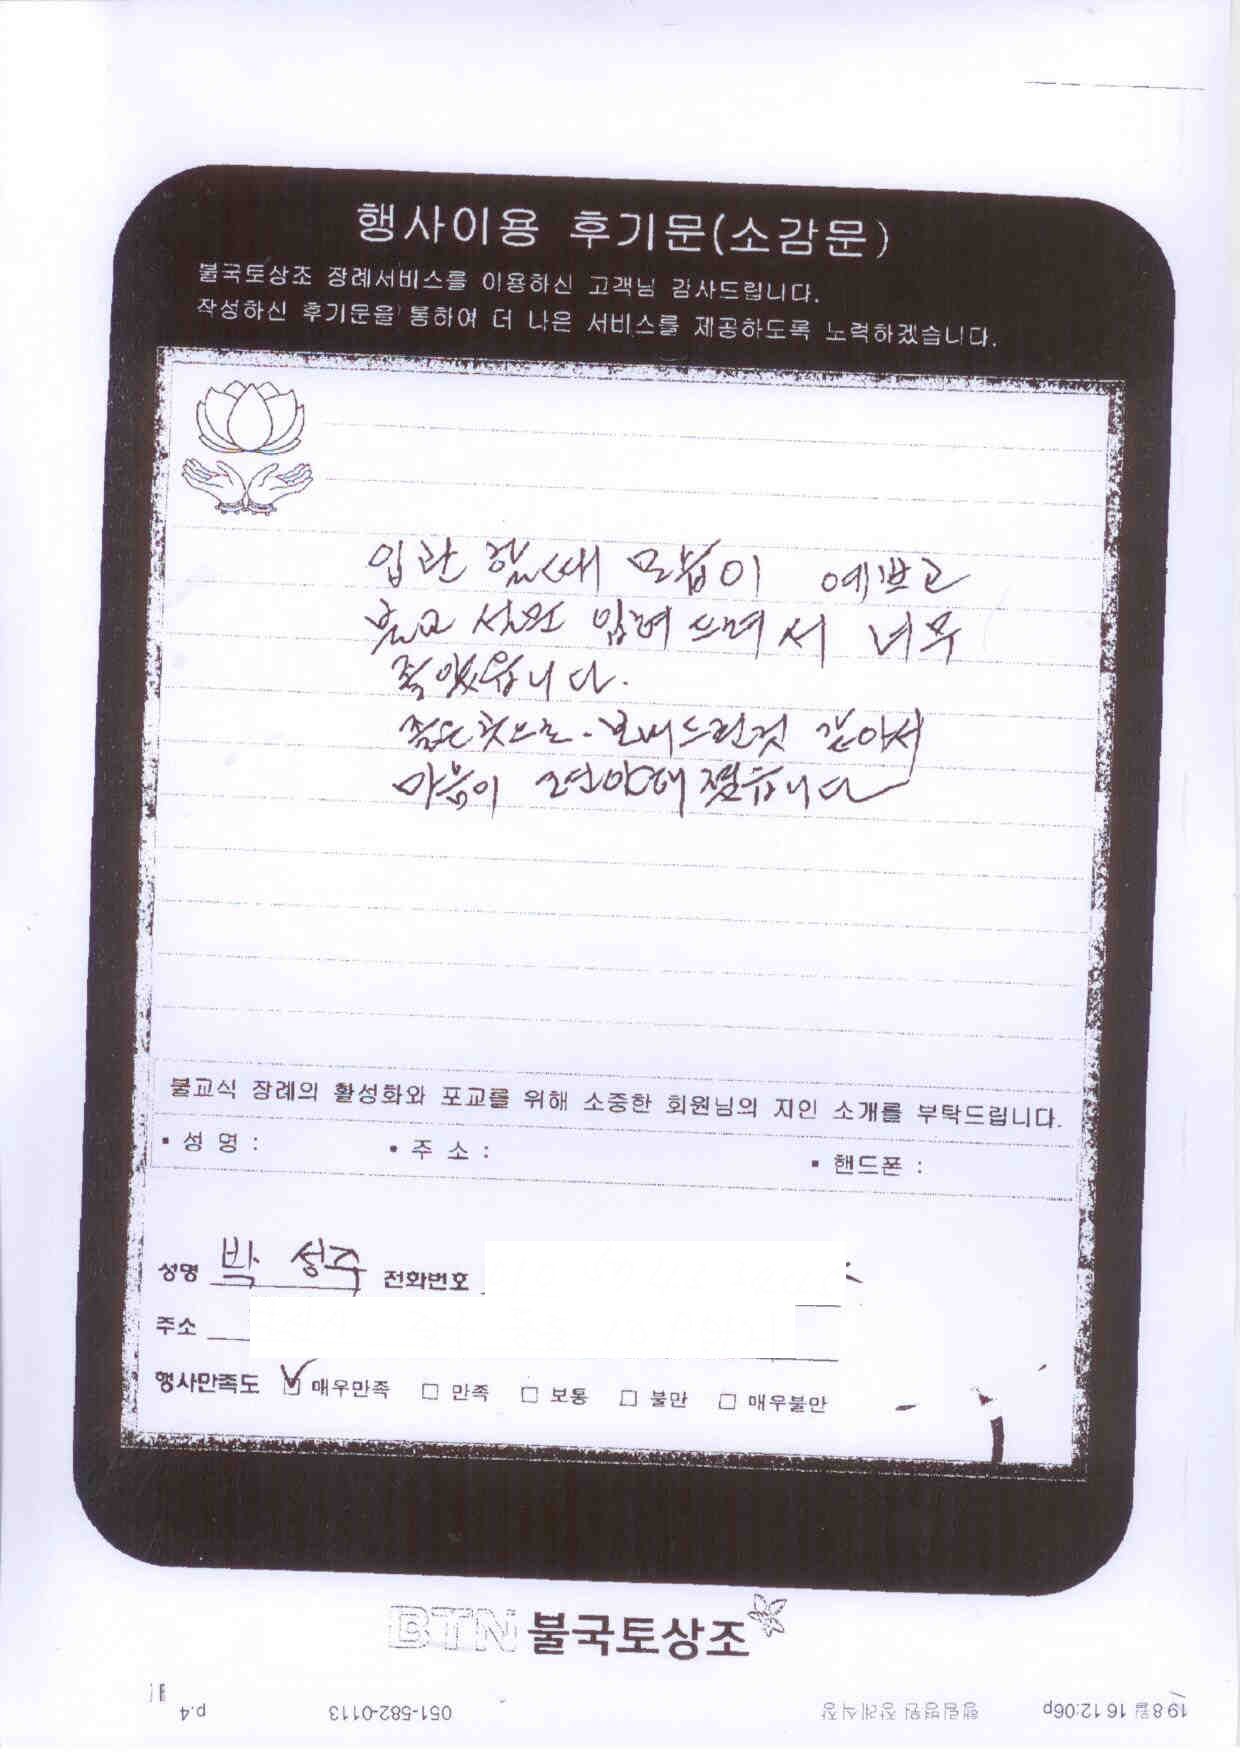 행사이용 후기문(소감문)
불국토상조 장례서비스를 이용하신 고객님 감사드립니다.
작성하신 후기문을 통하여 더 나은 서비스를 제공하도록 노력하겠습니다.
입관 할때 모습이 예쁘고
불교 입혀 드려서 너무
좋았습니다.
좋은곳으로. 보내드린것 같아서
마음이 편안해 졌습니다
불교식 장례의 활성화와 포교를 위해 소중한 회원님의 지인 소개를 부탁드립니다.
▪ 성 명 : ▪ 주 소 : ▪ 핸드폰 :
성명 박 성주 전화번호
주소
행사만족도 ☑ 매우만족 □ 만족 □ 보통 □ 불만 □ 매우불만
BTN 불국토상조
19 8월 16 12:06p 행림병원 장례식장 051-582-0113 p.4